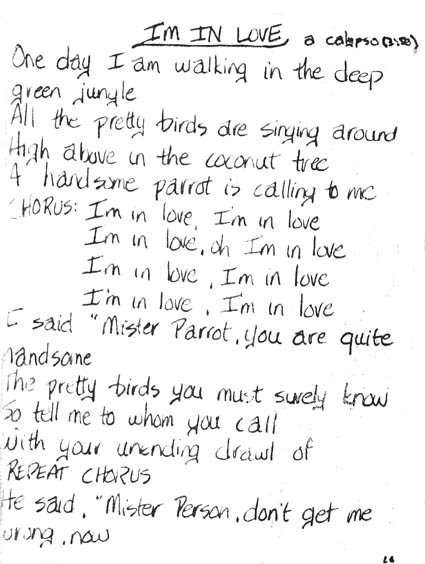 I'm IN LOVE, a calypso (3:50)
One day I am walking in the deep
green jungle
All the pretty birds are singing around
High above in the coconut tree
A handsome parrot is calling to me
CHORUS: I'm in love, I'm in love
I'm in love, oh I'm in love
I'm in love, I'm in love
I'm in love, I'm in love
I said "Mister Parrot, you are quite
handsome
The pretty birds you must surely know
So tell me to whom you call
With your unending drawl of
REPEAT CHORUS
He said, "Mister Person, don't get me
wrong, now
26